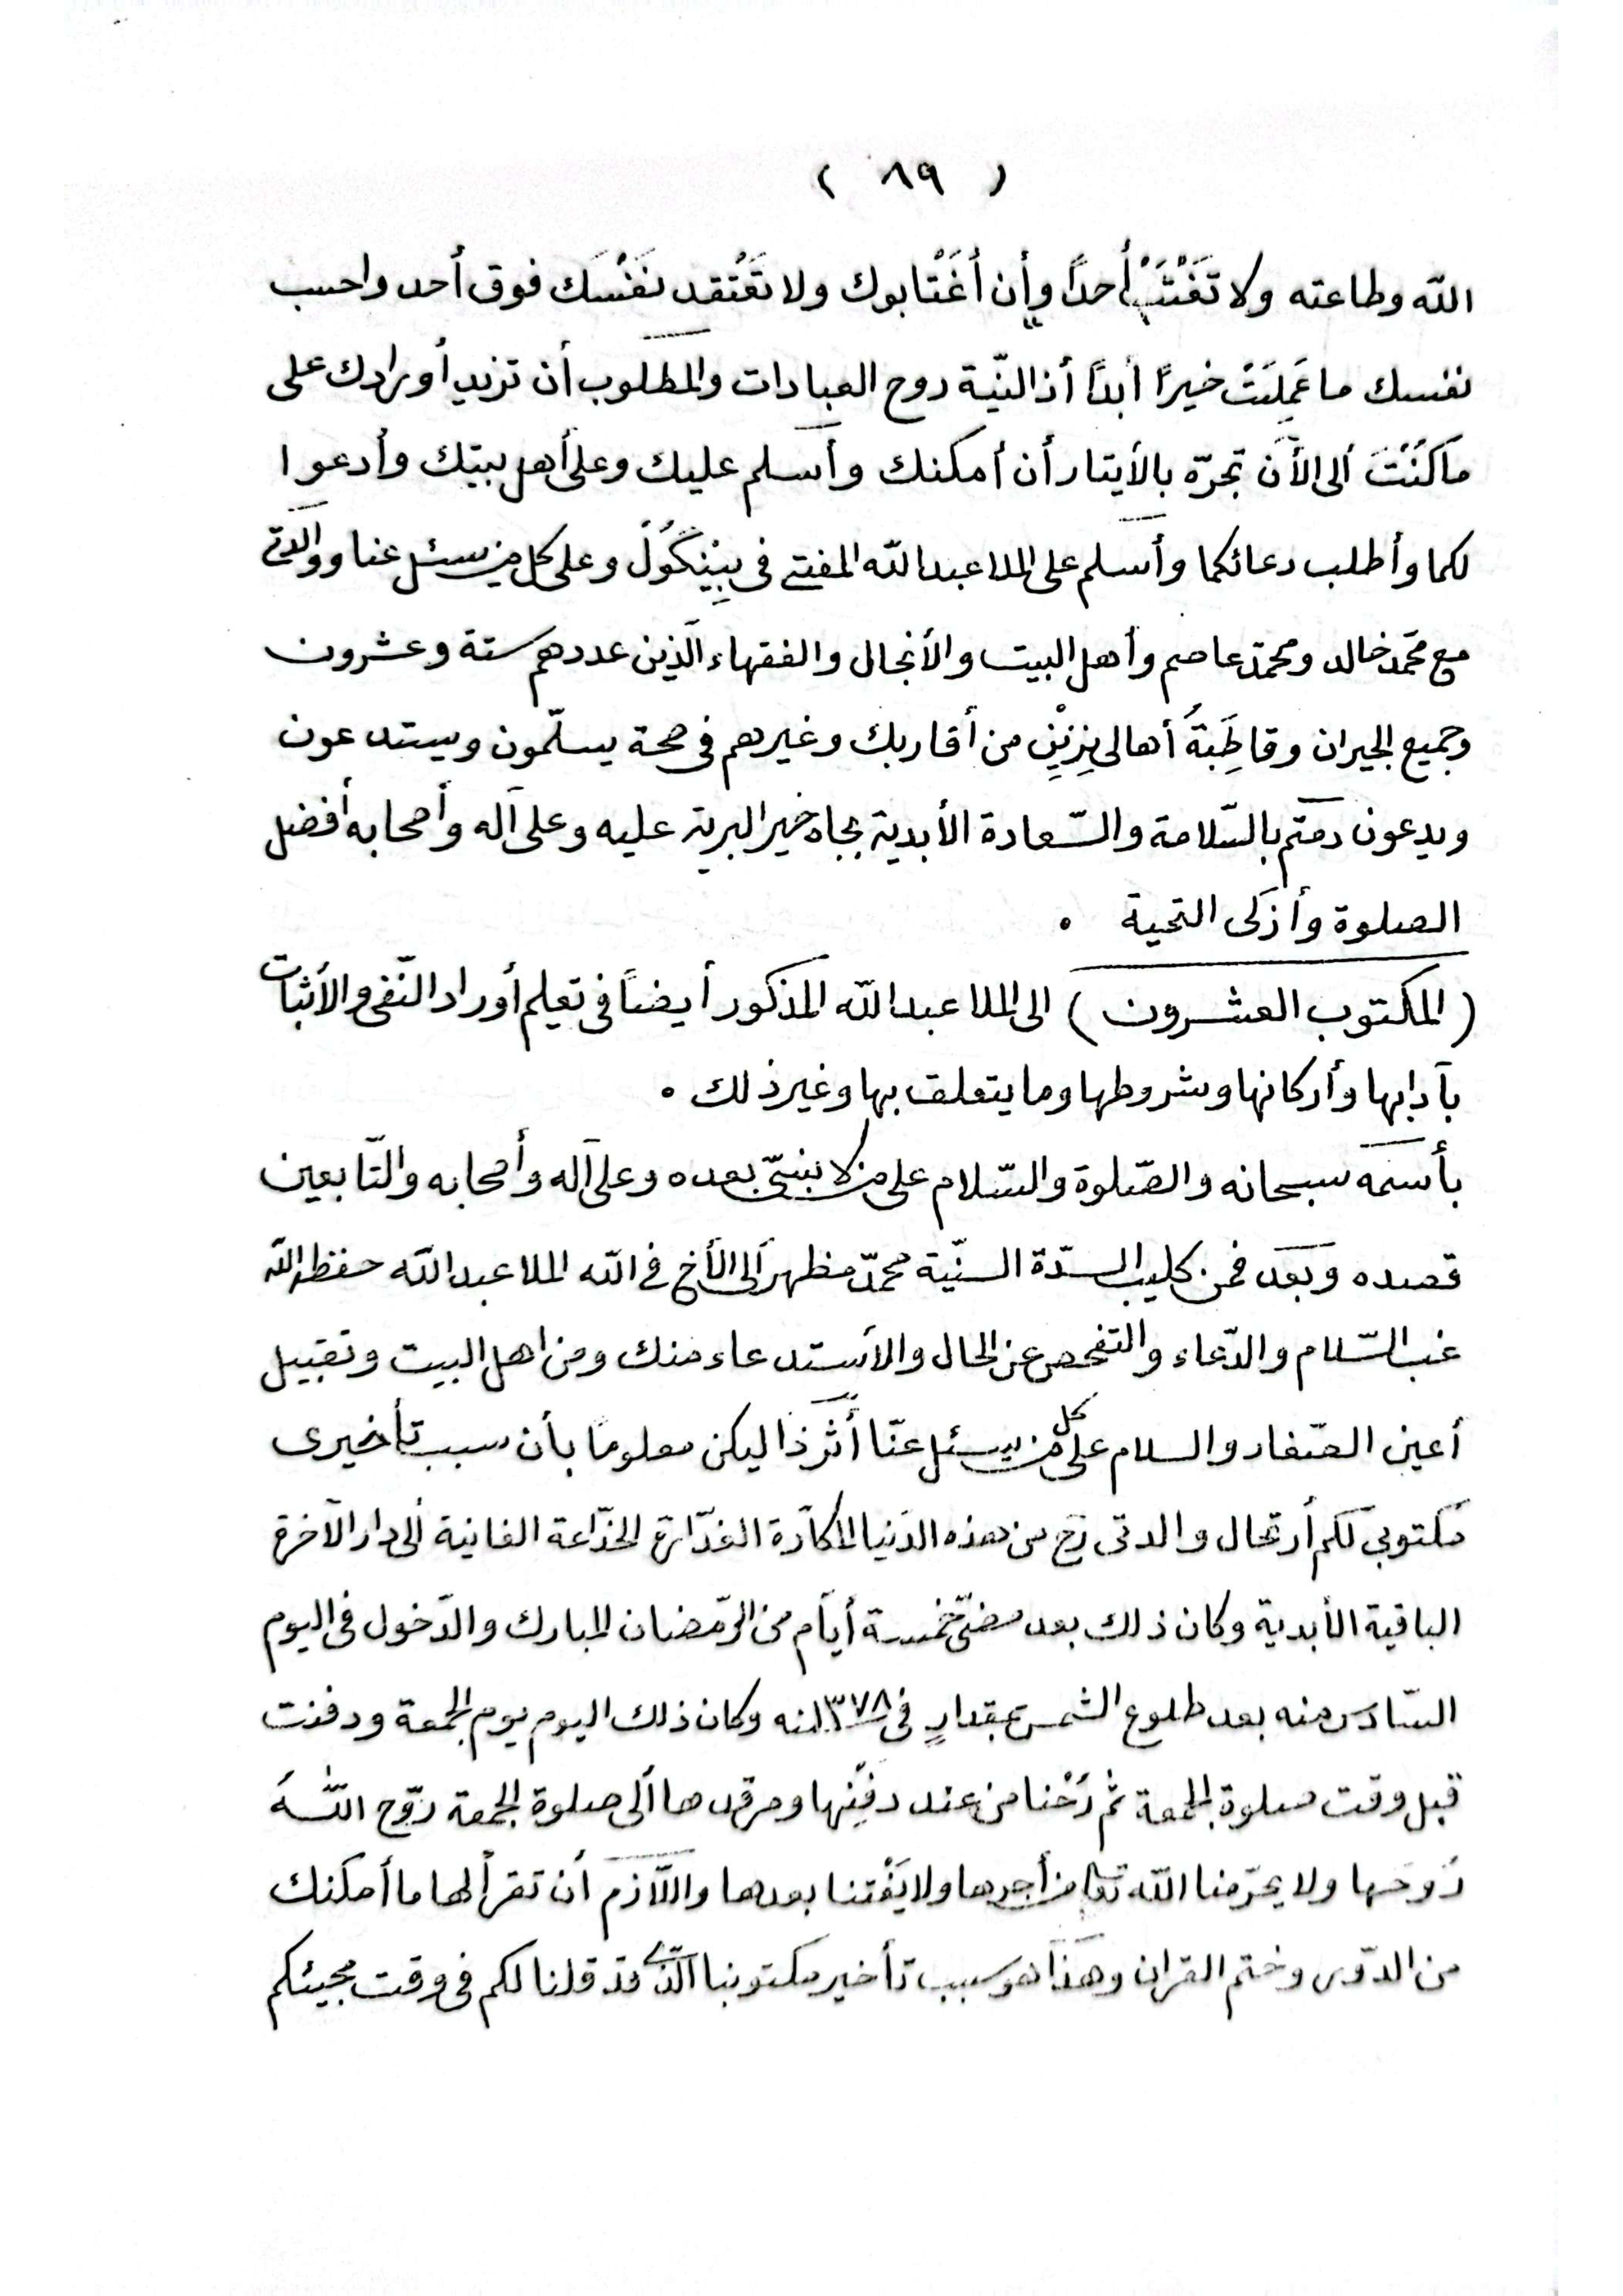 ( ٨٩ )
الله وطاعته ولا تَغْتَبْ أحداً وأن أغَتابوك ولا تَعْتقد نَفْسَك فوق أحد واحسب
نفسك ما عَمِلَتْ خيراً أبداً أذ النيّة روح العبادات والمطلوب أن تزيد أورادك على
ما كُنْتَ ألى الأن تجرّه بالأيتار أن أمكنك وأسلم عليك وعلى أهل بيتك وأدعوا
لكما وأطلب دعائكما وأسلم على الملا عبد الله المفتى فى بِيْنِگُولْ وعلى كل من سئل عنا ووالدتى
مع محمّد خالد ومحمّد عاصم وأهل البيت والأنجال والفقهاء الّذين عددهم ستة وعشرون
وجميع الجيران وقاطِبَةُ أهالى من أقاربك وغيرهم فى صحة يسلّمون ويستدعون
ويدعون دمتم بالسّلامة والسّعادة الأبدية بجاه خير البرية عليه وعلى آله وأصحابه أفضل
الصلوة وأزكى التحية .
( المكتوب العشرون ) الى الملا عبد الله المذكور أيضاً فى تعليم أوراد النّفى والأثبات
بآدابها وأركانها وشروطها وما يتعلق بها وغير ذلك .
بأسمه سبحانه والصّلوة والسّلام على من لا نبىّ بعده وعلى آله وأصحابه والتّابعين
قصده وبعد فمن كليب السدّة السنيّة محمّد مظهر ألى الأخ فى الله الملا عبد الله حفظه الله
غب السّلام والدّعاء والتفحص عن الحال والأستدعاء منك ومن اهل البيت وتقبيل
أعين الصّغار والسلام على كل من يسئل عنّا أثَرَذا ليكن معلوماً بأن سبب تأخيرى
مكتوبى لكم أرتحال والدتى رح من هذه الدّنيا المكاّرة الغدّارة الخدّاعة الفانية ألى دار الآخرة
الباقية الأبدية وكان ذلك بعد مضىّ خمسة أيّام من الرّمضان المبارك والدّخول فى اليوم
السّادس منه بعد طلوع الشمس بمقدارٍ فى ١٣٧٨ سنه وكان ذلك اليوم يوم الجمعة ودفنت
قبل وقت صلوة الجمعة ثم رُحْنا من عند دفنِها ومرقدها ألى صلوة الجمعة روّح اللهُ
رُوحَها ولا يحرّمنا الله تعا من أجرها ولا يَفْتنا بعدها واللاّزم أن تقرأ لها ما أمكنك
من الدّوس وختم القران وهذا هو سبب تأخير مكتوبنا الّذى قد قلنا لكم فى وقت مجيئكم